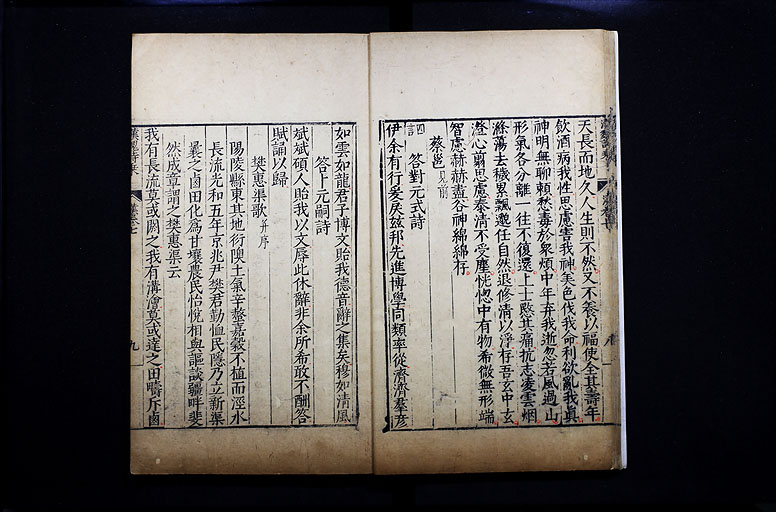 天長而地久人生則不然又不養以福使全其壽年
飲酒病我性思慮害我神美色伐我命利欲亂我真
神明無聊賴愁毒於衆煩中年棄我逝忽若風過山
形氣各分離一往不復還上士愍其痛抗志凌雲烟
滌蕩去穢累飄邈任自然退修清以淨存吾玄中玄
澄心翦思慮泰清不受塵恍惚中有物希微無形端
智慮赫赫盡谷神綿綿存
蔡邕見前
答對元式詩
四言
伊余有行爰戾茲邦先進博學同類率從濟濟羣彥
如雲如龍君子博文貽我德音辭之集矣穆如清風
答卜元嗣詩
斌斌碩人貽我以文辱此休辭非余所希敢不酬答
賦誦以歸
樊惠渠歌并序
陽陵縣東其地衍隩土氣辛螫嘉穀不植而涇水
長流光和五年京兆尹樊君勤恤民隱乃立新渠
曩之鹵田化為甘壤農民怡悅相與謳談疆畔斐
然成章謂之樊惠渠云
我有長流莫或閼之我有溝澮莫或達之田疇斥鹵
九